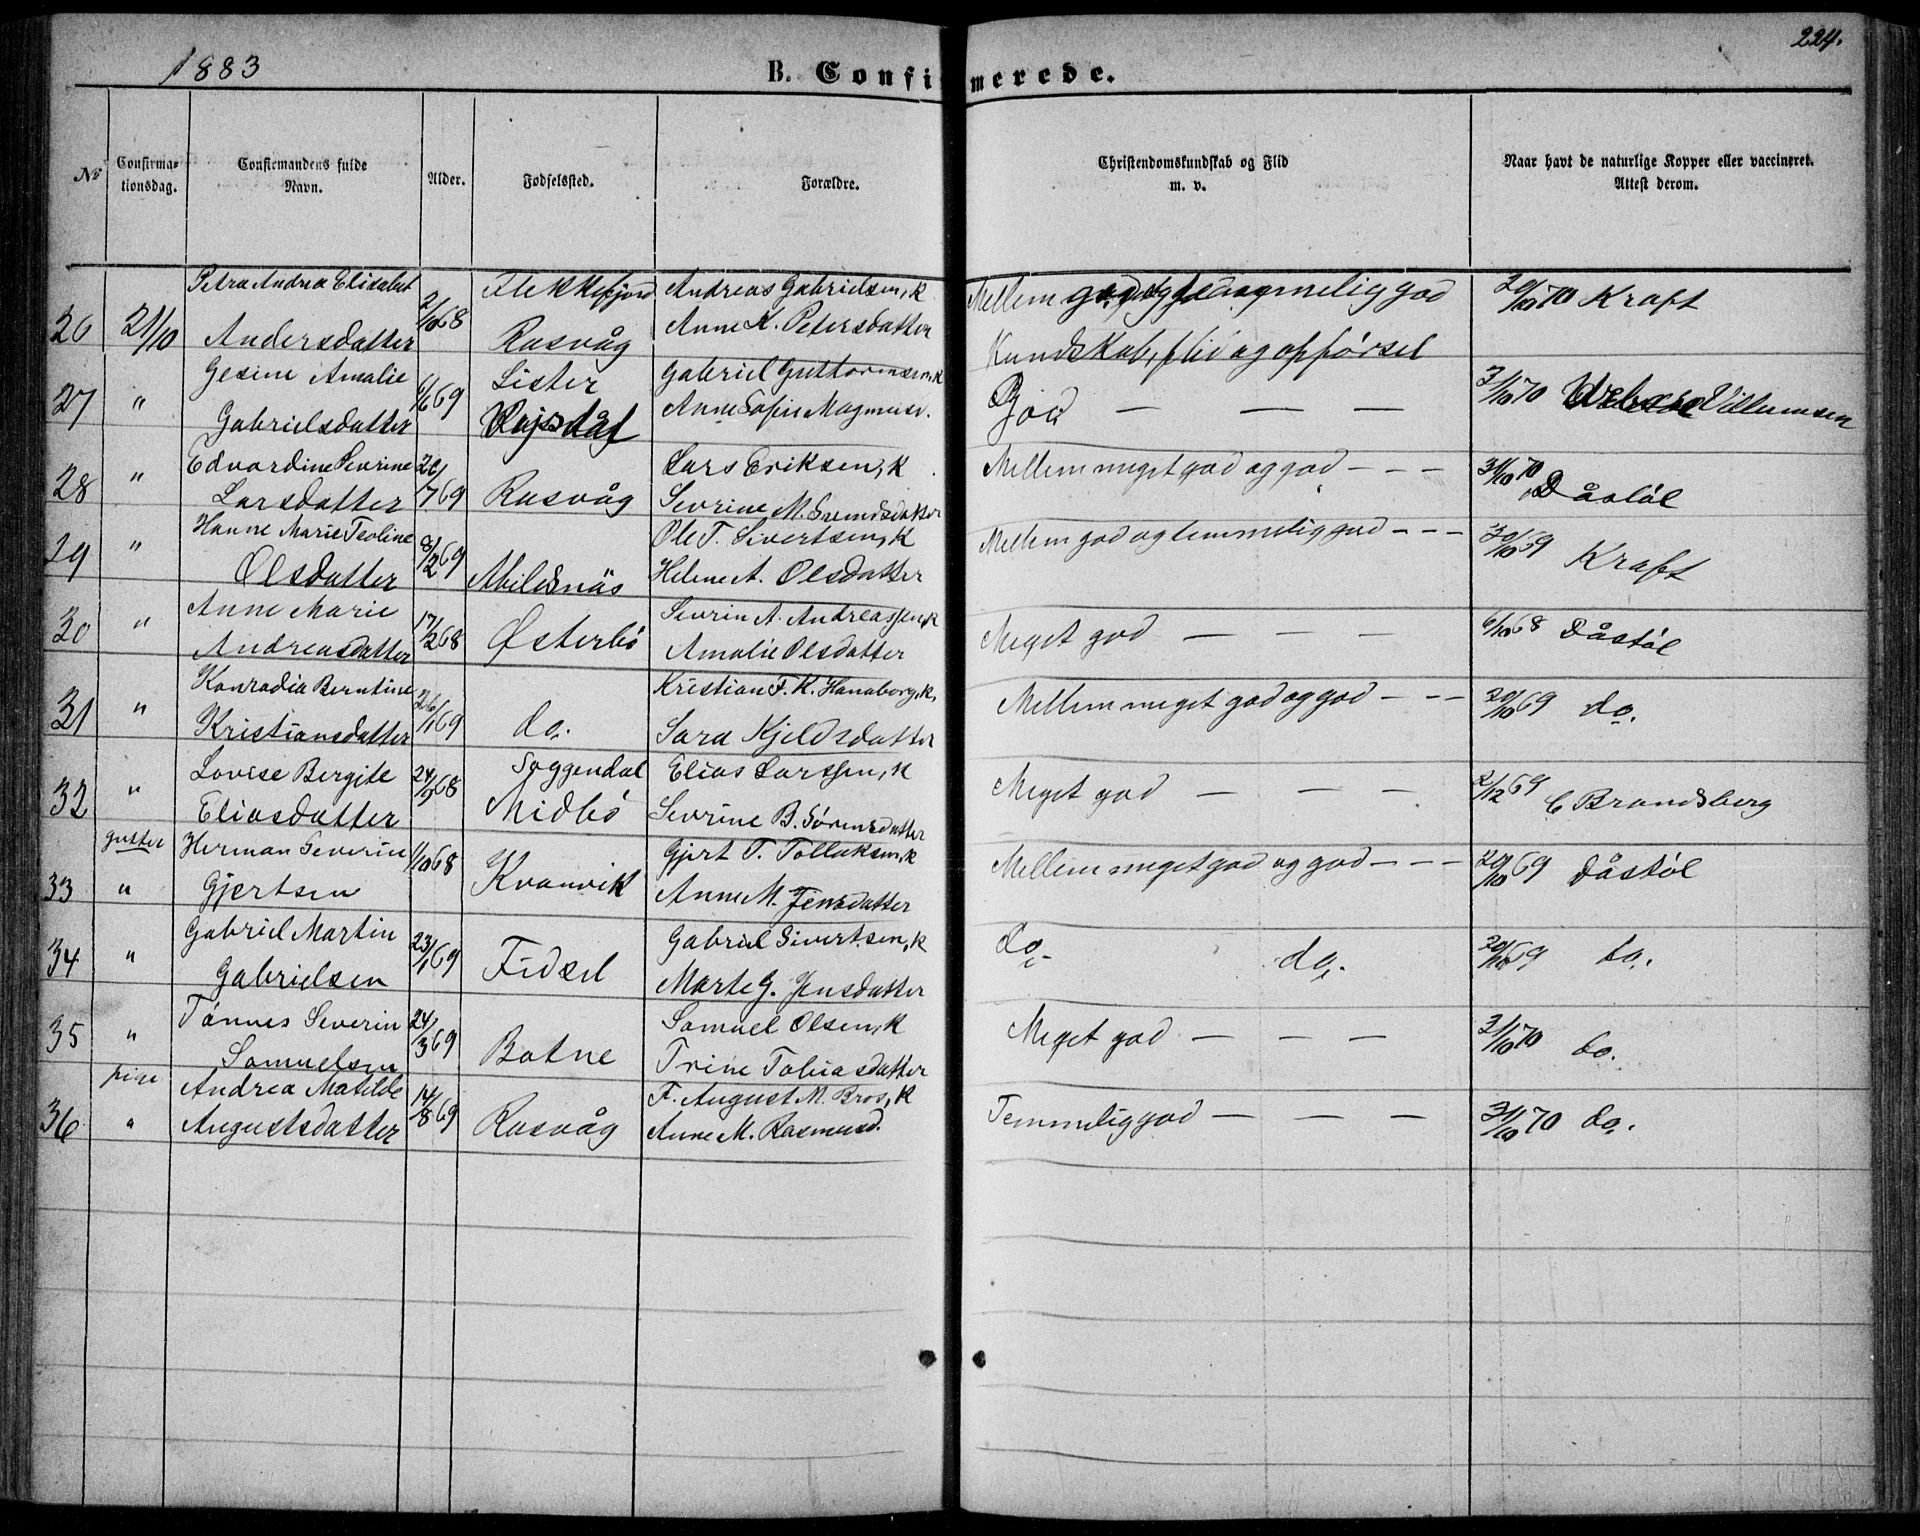 1883
B. Confirmerede.
224.
No
Confirma-
tionsdag.
Confirmandens fulde
Navn.
Alder.
Fødselssted.
Forældre.
Christendomskundskab og Flid
m. v.
Naar havt de naturlige Kopper eller vaccineret.
Attest derom.
Petra Andrea Elisabet Flekkefjord Andreas Gabrielsen, K Mellem god og temmelig god 20/10 70 Kraft
26 21/10 Andersdatter 2/10 68 Rasvåg Anne K. Petersdatter Kundskab, flid og opførsel
Gesine Amalie Lister Gabriel Guttormsen, K
27 " Gabrielsdatter 1/6 69 Anne Sofie Magnusd. God — — — 31/10 70 Villumsen
Edvardine Sevrine Lars Eriksen, K Mellem meget god og god - - -
28 " Larsdatter /7 69 Rasvåg Sevrine M. Svendsdatter 31/10 70 Dåstøl
Hanne Marie Teoline Ole T. Sivertsen, K Mellem god og temmelig god - - -
29 " Olsdatter 8/2 69 Abilesnäs Helene A. Olsdatter 30/10 69 Kraft
Anne Marie Sevrin A. Andreassen, K
30 " Andreasdatter 17/2 68 Østerbö Amalie Olsdatter Meget god — — — 6/10 68 Dåstøl
Konradia Berntine Kristian F. K. Hanaborg, K, Mellem meget god og god - - -
31 " Kristiansdatter 26/1 69 do. Sara Kjeldsdatter 20/10 69 do.
Lovise Bergite Soggendal Elias Larssen, K
32 " Eliasdatter 24/9 68 Midbö Sevrine B. Sørensdatter Meget god — — — 2/12 69 C Brandsberg
gutter Herman Severin Gjert T. Tollaksen, K Mellem meget god og god - - -
33 " Gjertsen 1/10 68 Kvanvik Anne M. Jensdatter 20/10 69 Dåstøl
Gabriel Martin Gabriel Sivertsen, K do. do.
34 " Gabrielsen 23/1 69 Fidsel Marte G. Jensdatter 20/10 69 do.
Tönnes Severin Samuel Olsen, K Meget god — — —
35 " Samuelsen 24/3 69 Botne Trine Tobiasdatter 31/10 70 do.
pige Andrea Matilde F. August M. Bros, K Temmelig god — — —
36 " Augustsdatter 14/8 69 Rasvåg Anne M. Rasmusd. 31/10 70 do.